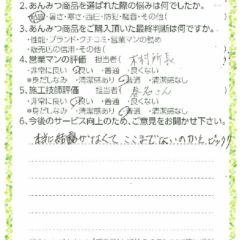 2.あんみつ商品を選ばれた際の悩みは何でしたか。
暑さ・寒さ・西日・防犯・騒音・その他(
3.あんみつ商品をご購入頂いた最終判断は何ですか。
・性能・ブランド・クチコミ・営業マンの勧め
・販売店の信用・その他(
4.営業マンの評価 担当者( 木村所長
・非常に良い ・良い ・普通 ・良くない
*身だしなみ ・清潔感あり ・普通 ・清潔感なし
5.施工技師評価 担当者(
・非常に良い ・良い ・普通 ・良くない
*身だしなみ ・清潔感あり ・普通 ・清潔感なし
6.今後のサービス向上のため、ご意見をお聞かせ下さい。
ここまで ビックリ